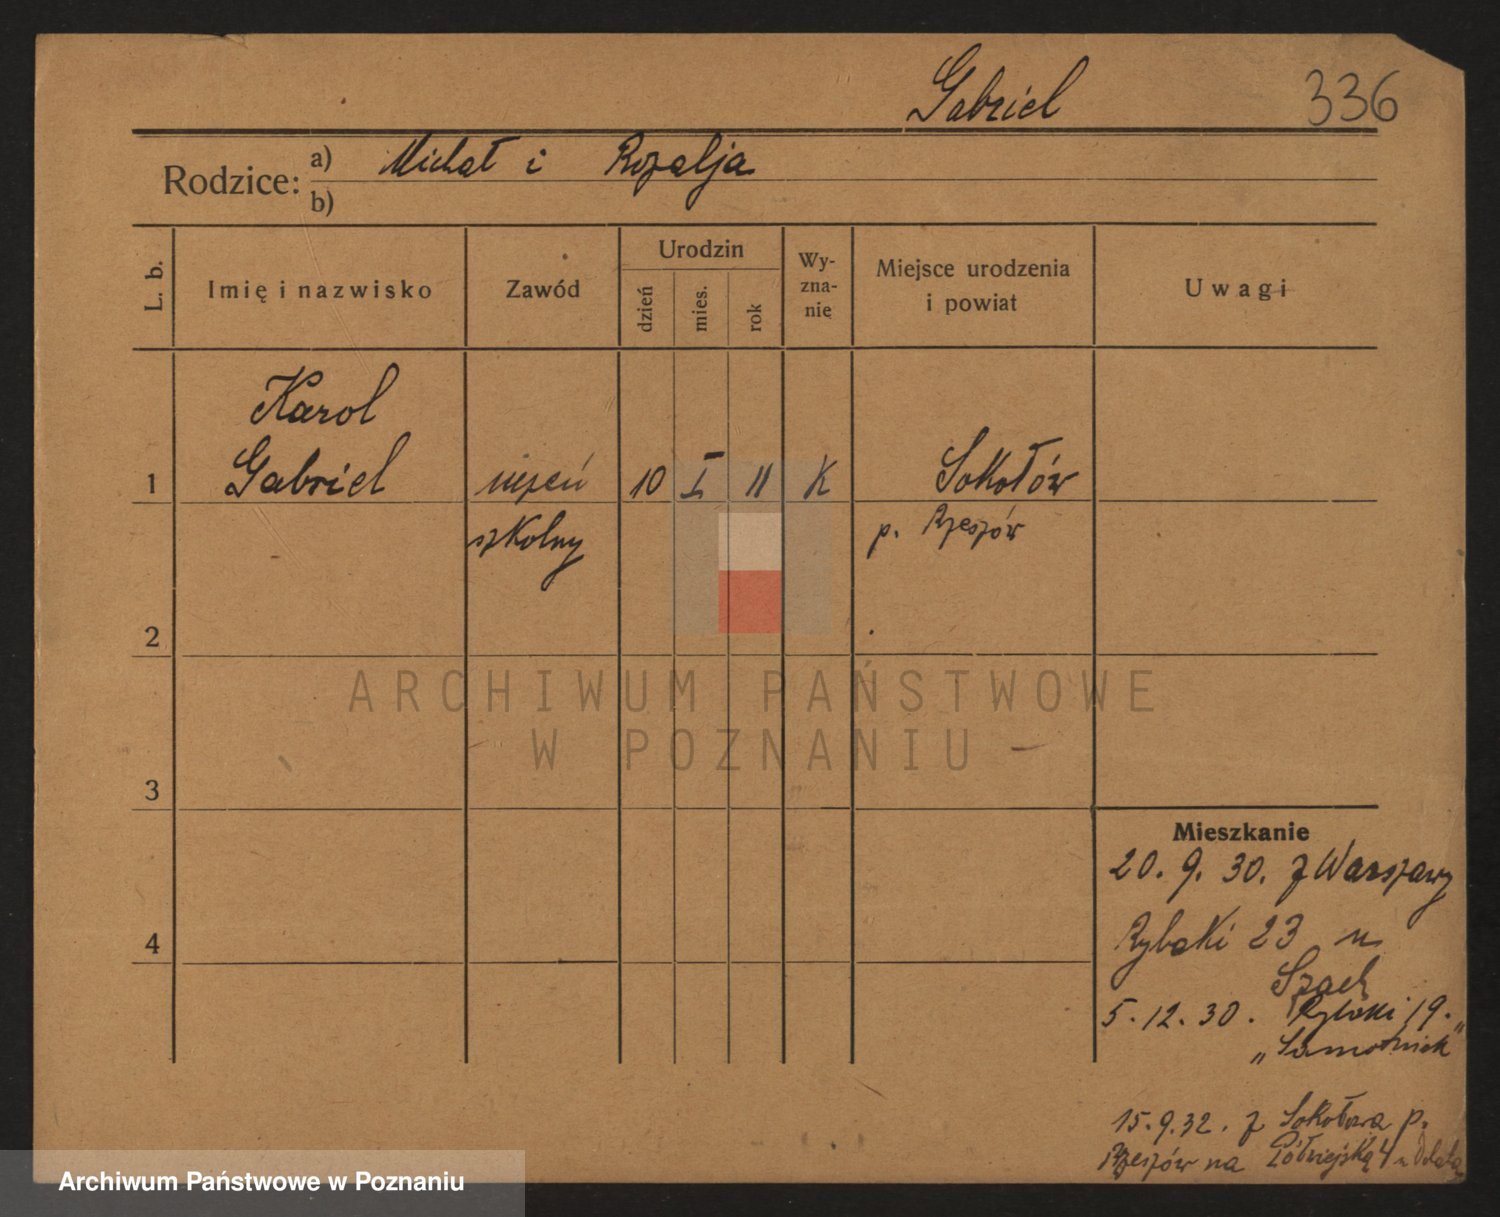 Gabriel 336
Rodzice: a) Michał i Rozalja
b)
L. b. Imię i nazwisko Zawód Urodzin dzień mies. rok Wy-zna-nie Miejsce urodzenia i powiat Uwagi
Karol
1 Gabriel uczeń 10 I 11 K Sokołów
szkolny p. Rzeszów
2
ARCHIWUM PAŃSTWOWE
W POZNANIU
3
Mieszkanie
20. 9. 30. z Warszawy
4 Rybaki 23 u
5. 12. 30. Rybaki 19.
15. 9. 32. z Sokołowa p.
Rzeszów na Półwiejską 4 u
Archiwum Państwowe w Poznaniu